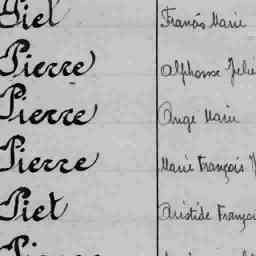 Piel Francis Marie
Pierre Alphonse
Pierre Ange Marie
Pierre Marie François
Piet Aristide
Pierre